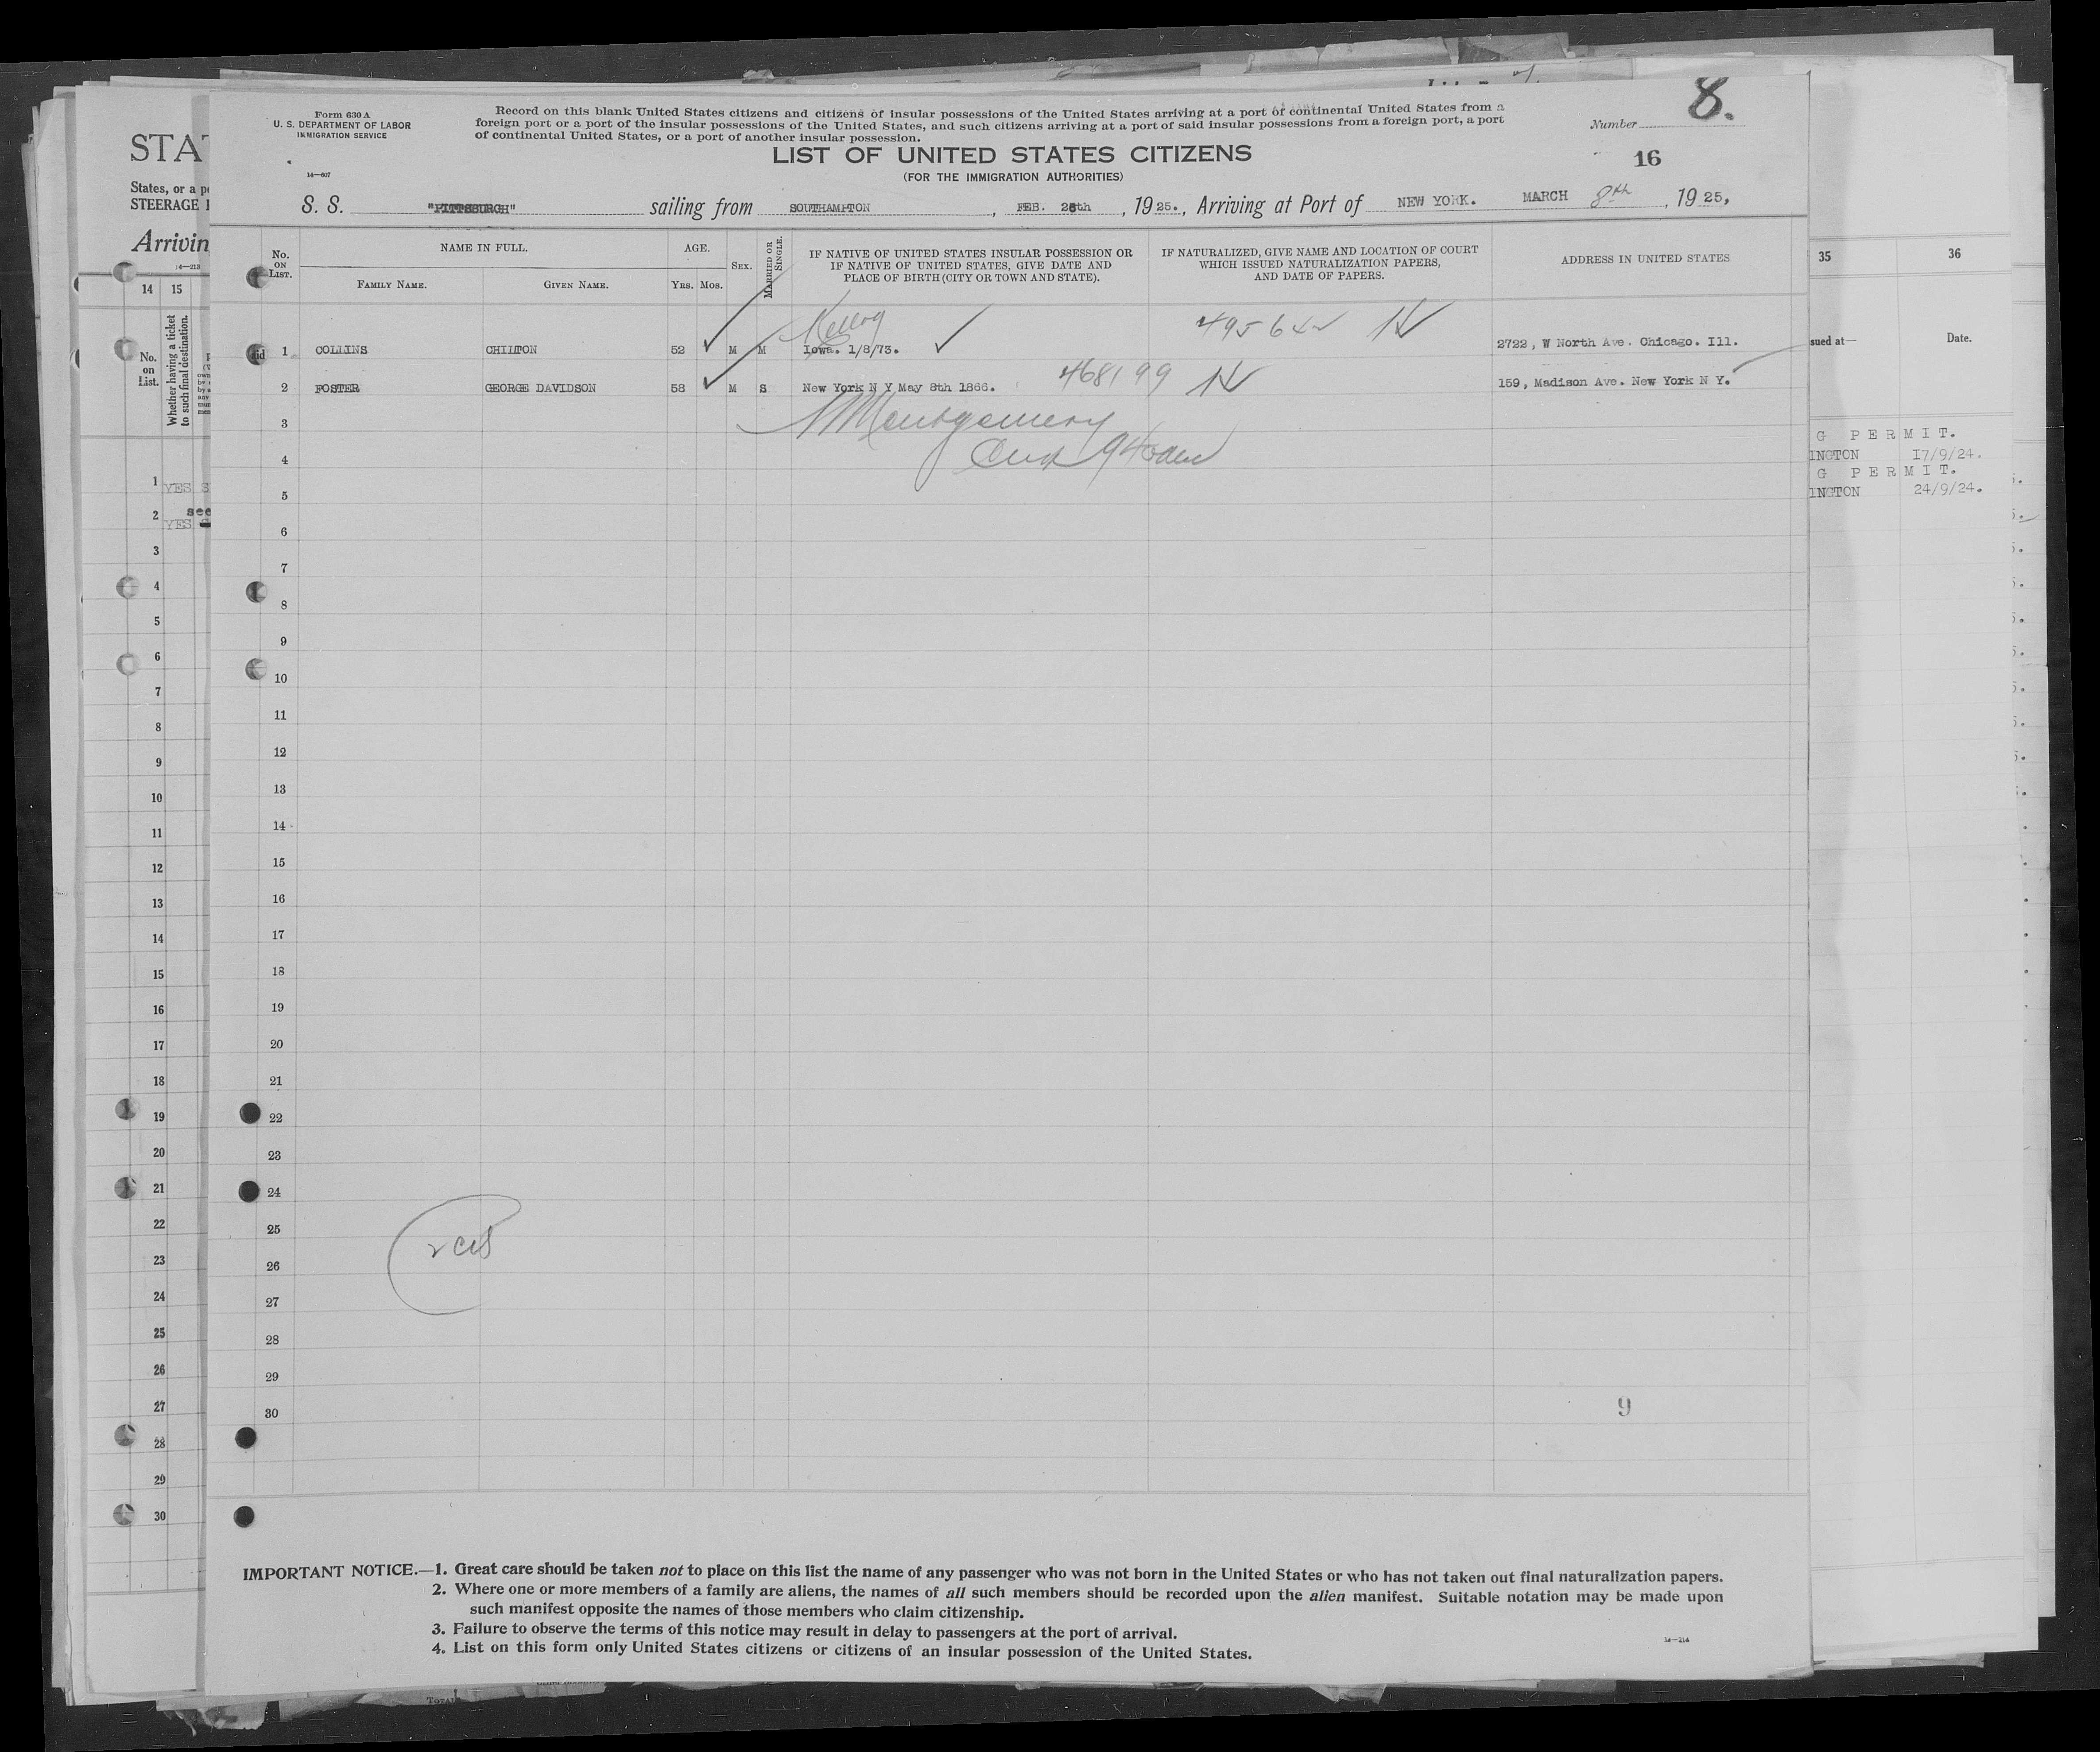 8.
Form 630 A
U. S. DEPARTMENT OF LABOR
IMMIGRATION SERVICE
14—607
Record on this blank United States citizens and citizens of insular possessions of the United States arriving at a port of continental United States from a
foreign port or a port of the insular possessions of the United States, and such citizens arriving at a port of said insular possessions from a foreign port, a port
of continental United States, or a port of another insular possession.
Number
LIST OF UNITED STATES CITIZENS
16
(FOR THE IMMIGRATION AUTHORITIES)
S. S. "PITTSBURGH" sailing from SOUTHAMPTON, FEB. 26th, 1925., Arriving at Port of NEW YORK. MARCH 8th, 1925,
No. ON LIST.
NAME IN FULL.
FAMILY NAME. GIVEN NAME.
AGE.
Yrs. Mos.
SEX.
MARRIED OR SINGLE.
IF NATIVE OF UNITED STATES INSULAR POSSESSION OR
IF NATIVE OF UNITED STATES, GIVE DATE AND
PLACE OF BIRTH (CITY OR TOWN AND STATE).
IF NATURALIZED, GIVE NAME AND LOCATION OF COURT
WHICH ISSUED NATURALIZATION PAPERS,
AND DATE OF PAPERS.
ADDRESS IN UNITED STATES
1 COLLINS CHILTON 52 M M Iowa. 1/8/73. 2722, W North Ave. Chicago. Ill.
2 FOSTER GEORGE DAVIDSON 58 M S New York N Y May 8th 1866. 468199 159, Madison Ave. New York N Y.
3 Montgomery
4
5
6
7
8
9
10
11
12
13
14
15
16
17
18
19
20
21
22
23
24
25
26
27
28
29
30
9
IMPORTANT NOTICE.—1. Great care should be taken not to place on this list the name of any passenger who was not born in the United States or who has not taken out final naturalization papers.
2. Where one or more members of a family are aliens, the names of all such members should be recorded upon the alien manifest. Suitable notation may be made upon
such manifest opposite the names of those members who claim citizenship.
3. Failure to observe the terms of this notice may result in delay to passengers at the port of arrival.
4. List on this form only United States citizens or citizens of an insular possession of the United States.
14—214
STA
States, or a p
STEERAGE
Arrivin
14—213
14 15
No. on List.
Whether having a ticket
to such final destination.
1 YES S
see
2 YES
3
4
5
6
7
8
9
10
11
12
13
14
15
16
17
18
19
20
21
22
23
24
25
26
27
28
29
30
35 36
sued at— Date.
G PERMIT.
INGTON 17/9/24.
G PERMIT.
INGTON 24/9/24.